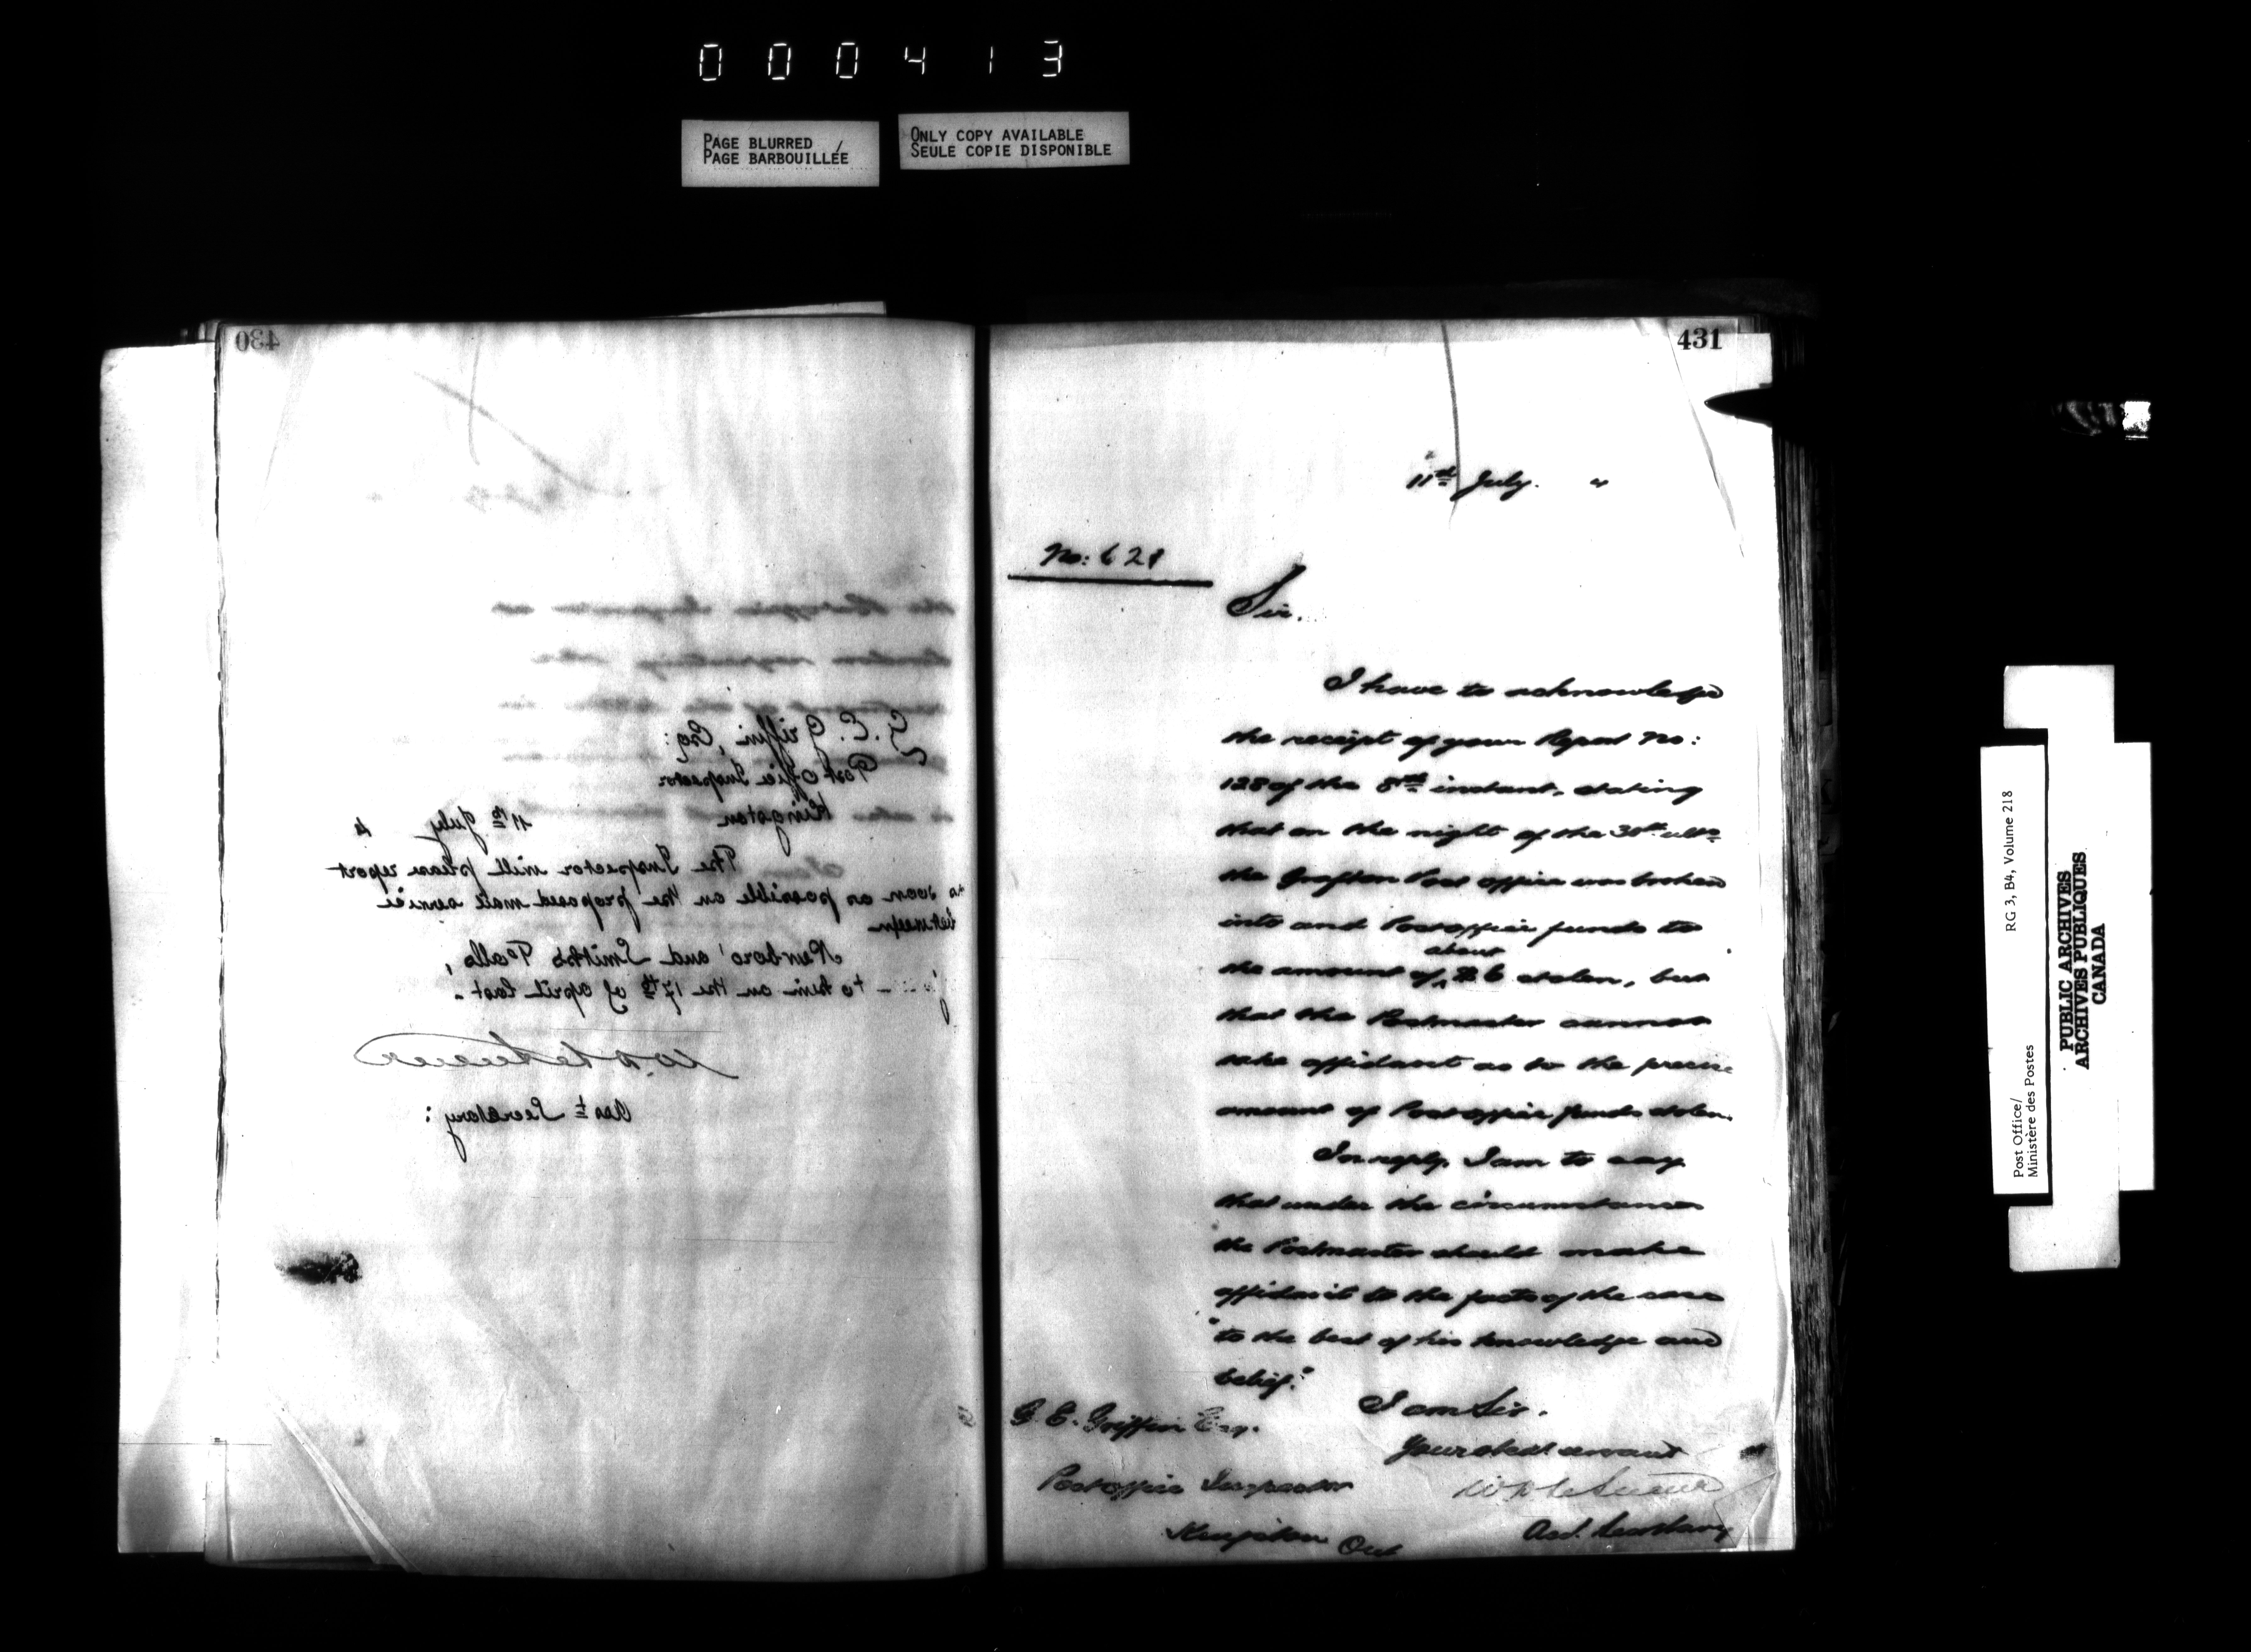 000413
PAGE BLURRED /
PAGE BARBOUILLÉE
ONLY COPY AVAILABLE
SEULE COPIE DISPONIBLE
430
G. E. Griffin, Esq:
Post Office Inspector
Kingston
11th July 4
The Inspector will please report
as soon as possible on the proposed mail service
between
Newboro' and Smith's Falls,
to him on the 17th of april last.
W. D. LeSueur
Asst Secretary:
431
11th July. 4
No: 628
Sir.
I have to acknowledge
the receipt of your Report No:
128 of the 8th instant, stating
that on the night of the 30th ulto
the Grafton Post office was broken
into and Post office funds to
about
the amount of $6 stolen, but
that the Postmaster cannot
take affidavit as to the precise
amount of Post office funds stolen.
In reply, I am to say
that under the circumstances
the Postmaster should make
affidavit to the facts of the case
"to the best of his knowledge and
belief."
I am Sir.
Your obedt servant
W D LeSueur
Asst. Secretary
G. E. Griffin Esq.
Post office Inspector
Kingston Ont
Post Office/
Ministère des Postes
RG 3, B4, Volume 218
PUBLIC ARCHIVES
ARCHIVES PUBLIQUES
CANADA